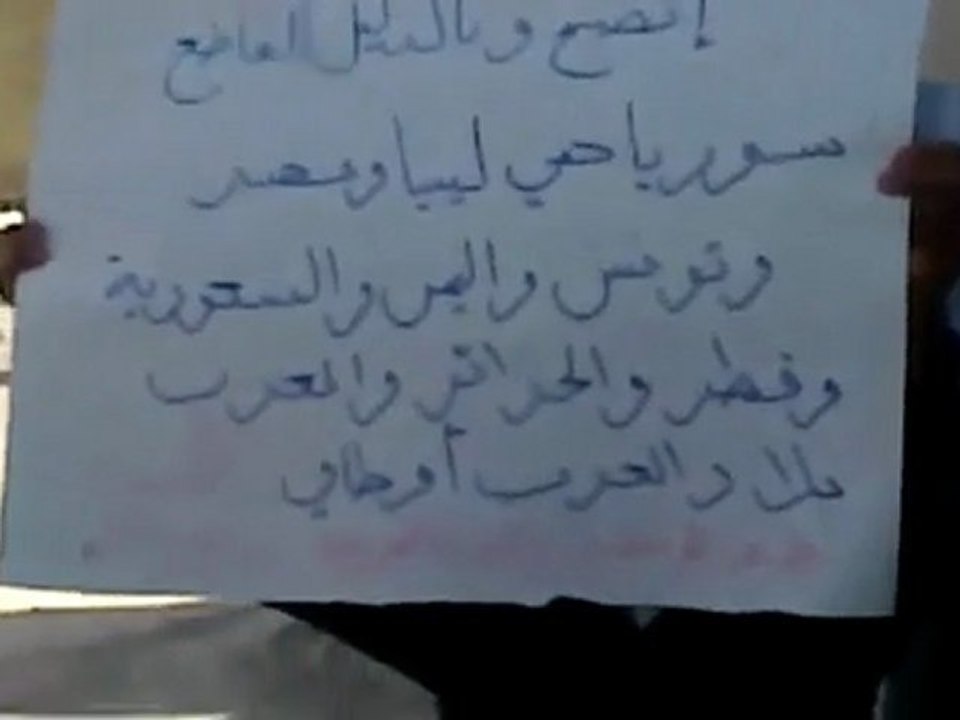 إتضح وبالدليل القاطع
سوريا هي ليبيا ومصر
وتونس واليمن والسعودية
وقطر والجزائر والعرب
بلاد العرب أوطاني